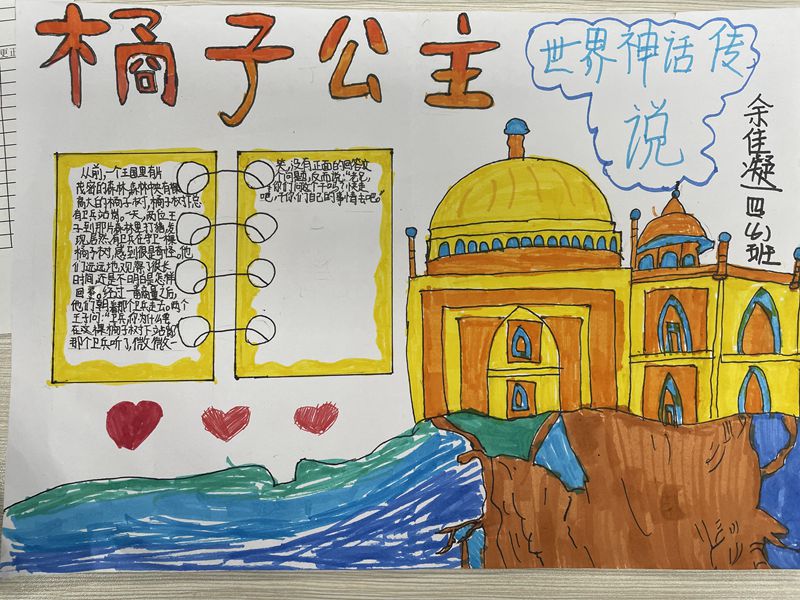 橘子公主
世界神话传
说
余佳凝 四(4)班
从前,一个王国里有片
茂密的森林,森林中央有棵
高大的橘子树,橘子树下总
有卫兵站岗。一天,两位王
子到那片森林里打猎,发
现居然有卫兵在守卫一棵
橘子树,感到很是奇怪。他
们远远地观察了很长
时间,还是不明白是怎样
回事。经过一番商量之后,
他们朝着那个卫兵走去。两个
王子问:“卫兵,你为什么要
在这棵橘子树下站岗?”
那个卫兵听了,微微一
笑,没有正面的回答这
个问题,反而说:“老兄,
你们问这个干吗?快走
吧,干你们自己的事情去吧。”
更正